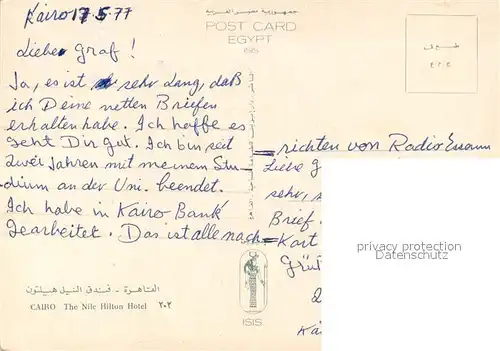 Kairo 17.5.77
Lieber Graf!
Ja, es ist sehr lang, daß
ich Deine netten Briefen
erhalten habe. Ich hoffe es
geht Dir gut. Ich bin seit
zwei Jahren mit meinem Stu-
dium an der Uni. beendet.
Ich habe in Kairo Bank
gearbeitet. Das ist alle nach=
القاهرة - فندق النيل هيلتون
CAIRO The Nile Hilton Hotel ٢٠٢
جمهورية مصر العربية
POST CARD
EGYPT
ISIS
ISIS
=richten von Radio
Liebe G
sehr,
Brief.
Kart
Grüß
privacy protection
www.ansichtskarten-center.de